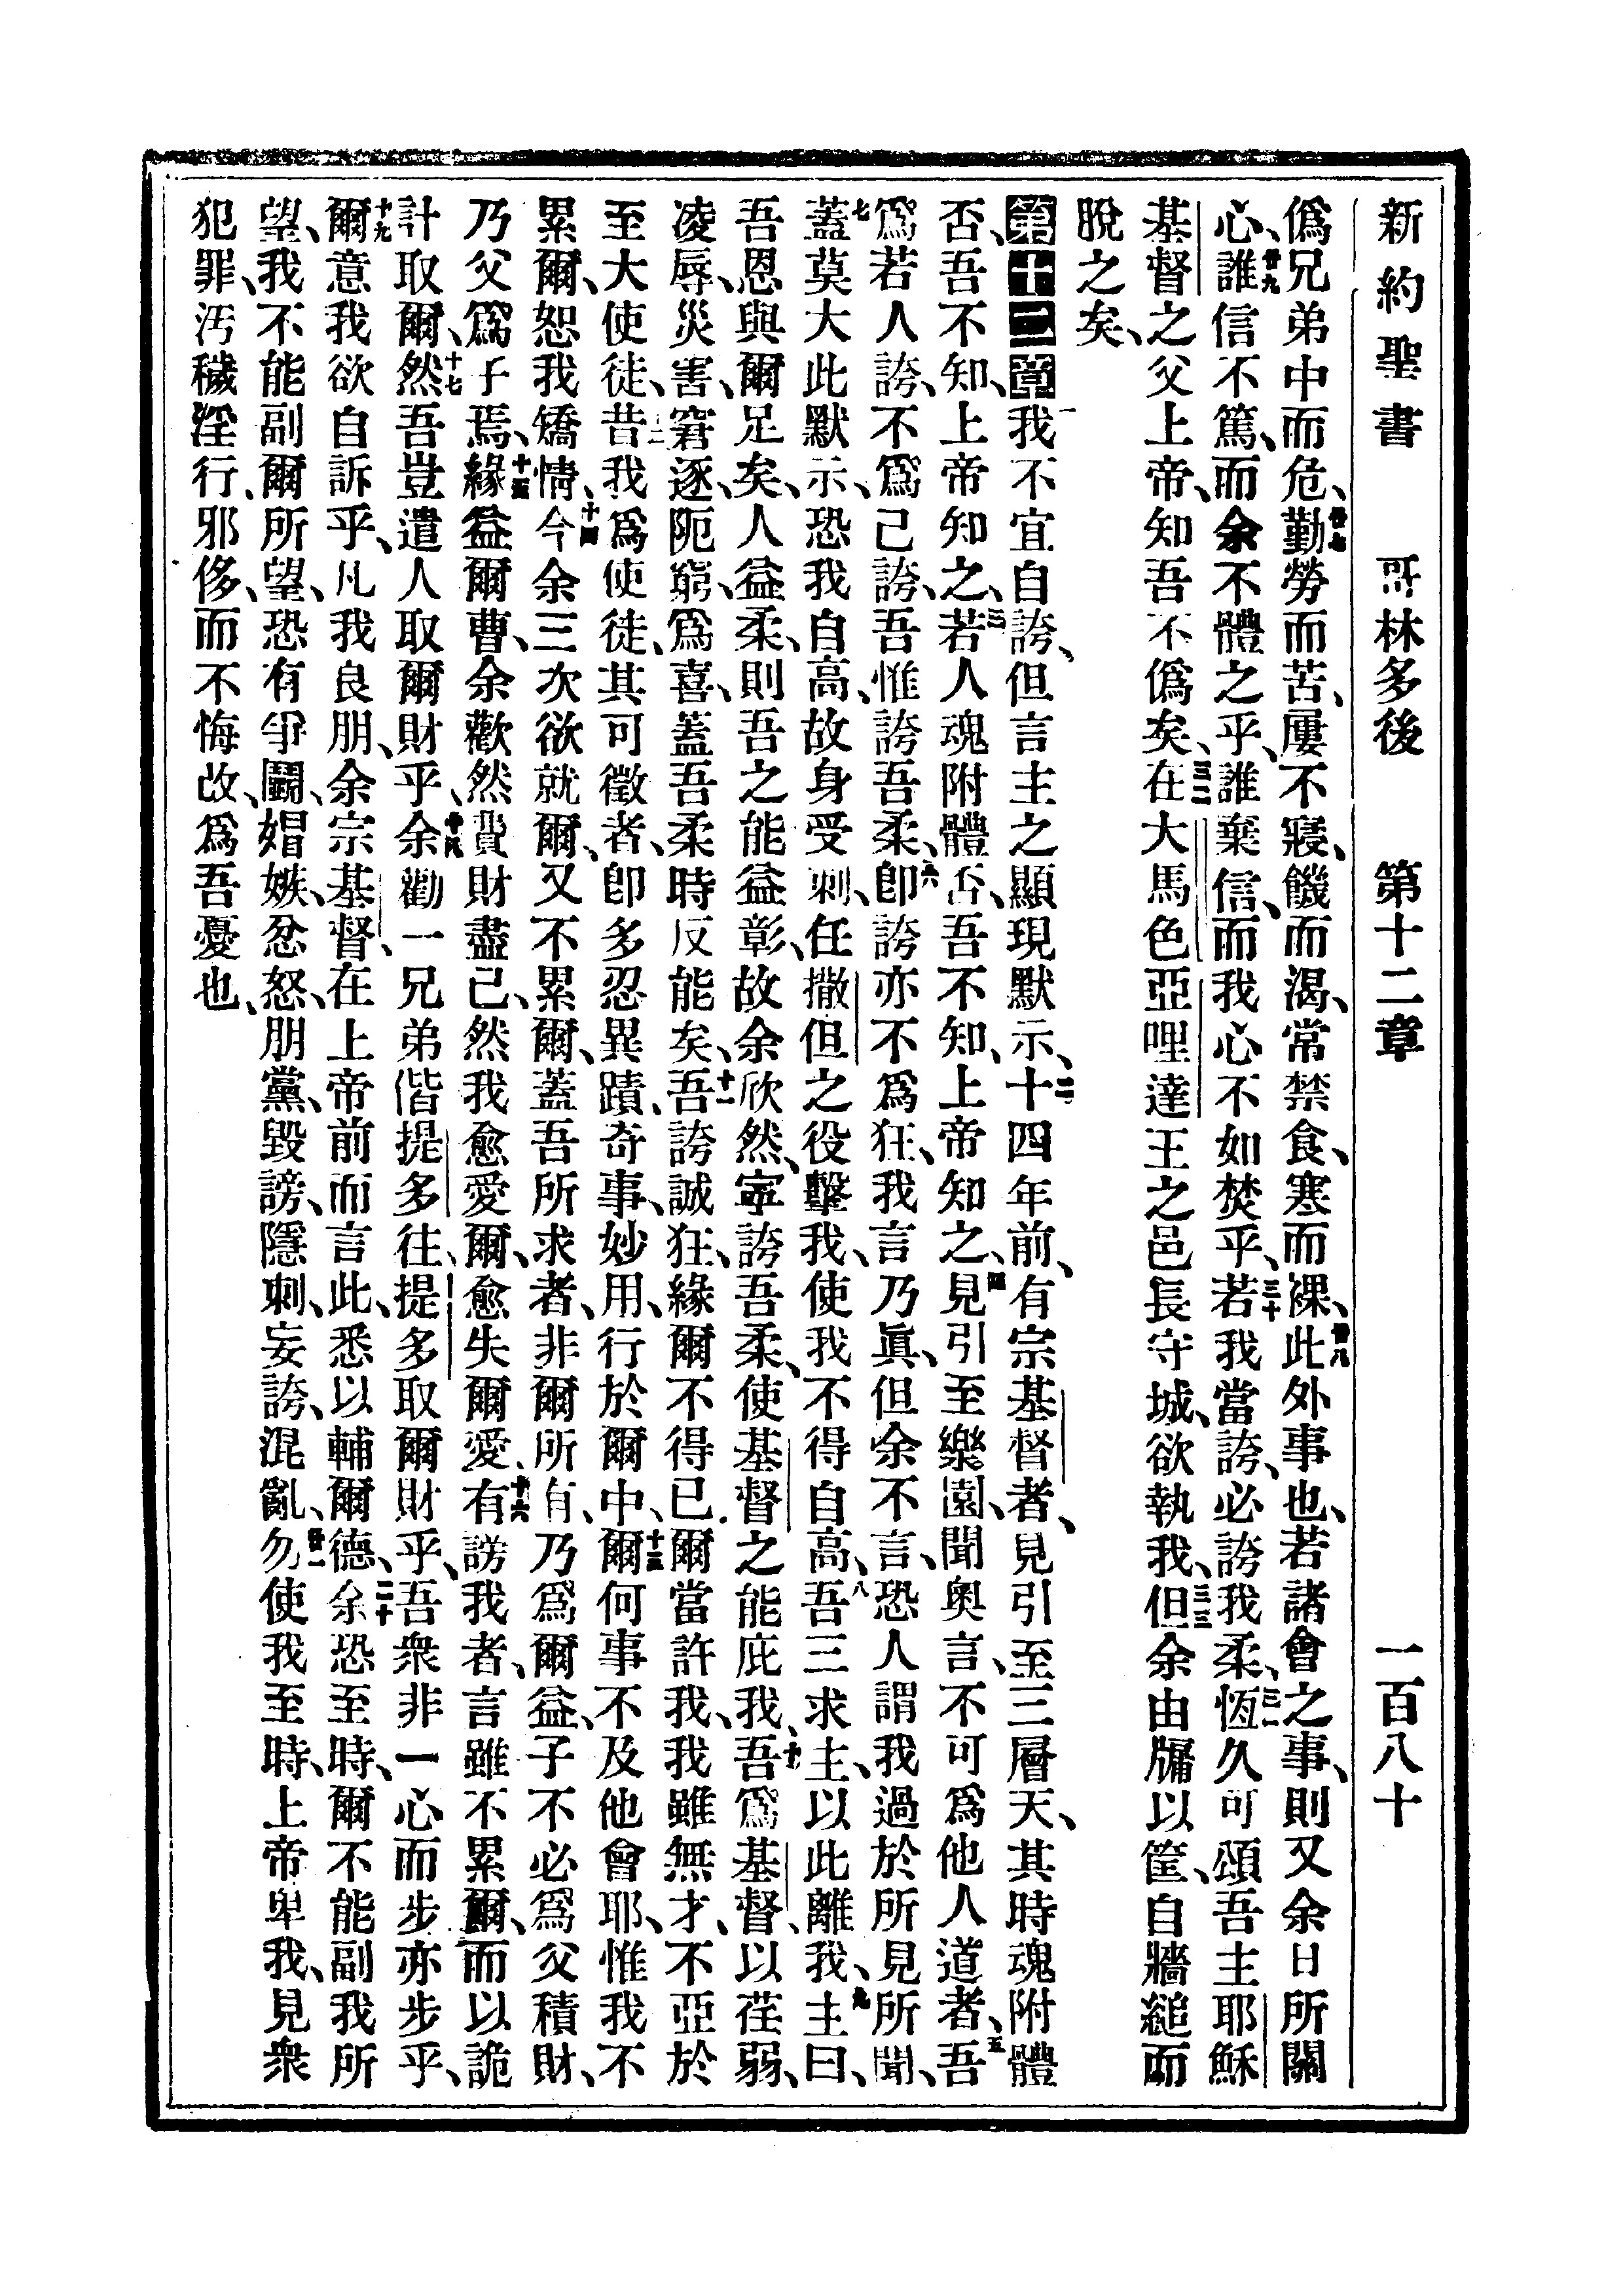 新約聖書 哥林多後 第十二章 一百八十
僞兄弟中而危、廿七勤勞而苦、屢不寢、饑而渴、常禁食、寒而裸、廿八此外事也、若諸會之事、則又余日所關
心、廿九誰信不篤、而余不體之乎、誰棄信、而我心不如焚乎、三十若我當誇、必誇我柔、三一恆久可頌吾主耶穌
基督之父上帝、知吾不僞矣、三二在大馬色亞哩達王之邑長守城、欲執我、三三但余由牖以筐、自牆縋而
脫之矣、
第十二章一我不宜自誇、但言主之顯現默示、二十四年前、有宗基督者、見引至三層天、其時魂附體
否、吾不知、上帝知之、三若人魂附體否、吾不知、上帝知之、四見引至樂園、聞奧言、不可爲他人道者、五吾
爲若人誇、不爲己誇、吾惟誇吾柔、六卽誇亦不爲狂、我言乃眞、但余不言、恐人謂我過於所見所聞、
七蓋莫大此默示、恐我自高、故身受刺、任撒但之役擊我、使我不得自高、八吾三求主、以此離我、九主曰、
吾恩與爾足矣、人益柔、則吾之能益彰、故余欣然、寧誇吾柔、使基督之能庇我、十吾爲基督、以荏弱、
凌辱、災害、窘逐、阨窮、爲喜、蓋吾柔時反能矣、十一吾誇誠狂、緣爾不得已、爾當許我、我雖無才、不亞於
至大使徒、十二昔我爲使徒、其可徵者、卽多忍異蹟、奇事、妙用、行於爾中、十三爾何事不及他會耶、惟我不
累爾、恕我矯情、十四今余三次欲就爾、又不累爾、蓋吾所求者、非爾所有、乃爲爾益、子不必爲父積財、
乃父爲子焉、十五緣益爾曹、余歡然費財盡己、然我愈愛爾、愈失爾愛、十六有謗我者、言雖不累爾、而以詭
計取爾、十七然吾豈遣人取爾財乎、十八余勸一兄弟偕提多往、提多取爾財乎、吾衆非一心而步亦步乎、
十九爾意我欲自訴乎、凡我良朋、余宗基督、在上帝前而言此、悉以輔爾德、二十余恐至時、爾不能副我所
望、我不能副爾所望、恐有爭鬬、媢嫉、忿怒、朋黨、毀謗、隱刺、妄誇、混亂、廿一勿使我至時、上帝卑我、見衆
犯罪、汚穢淫行、邪侈、而不悔改、爲吾憂也、